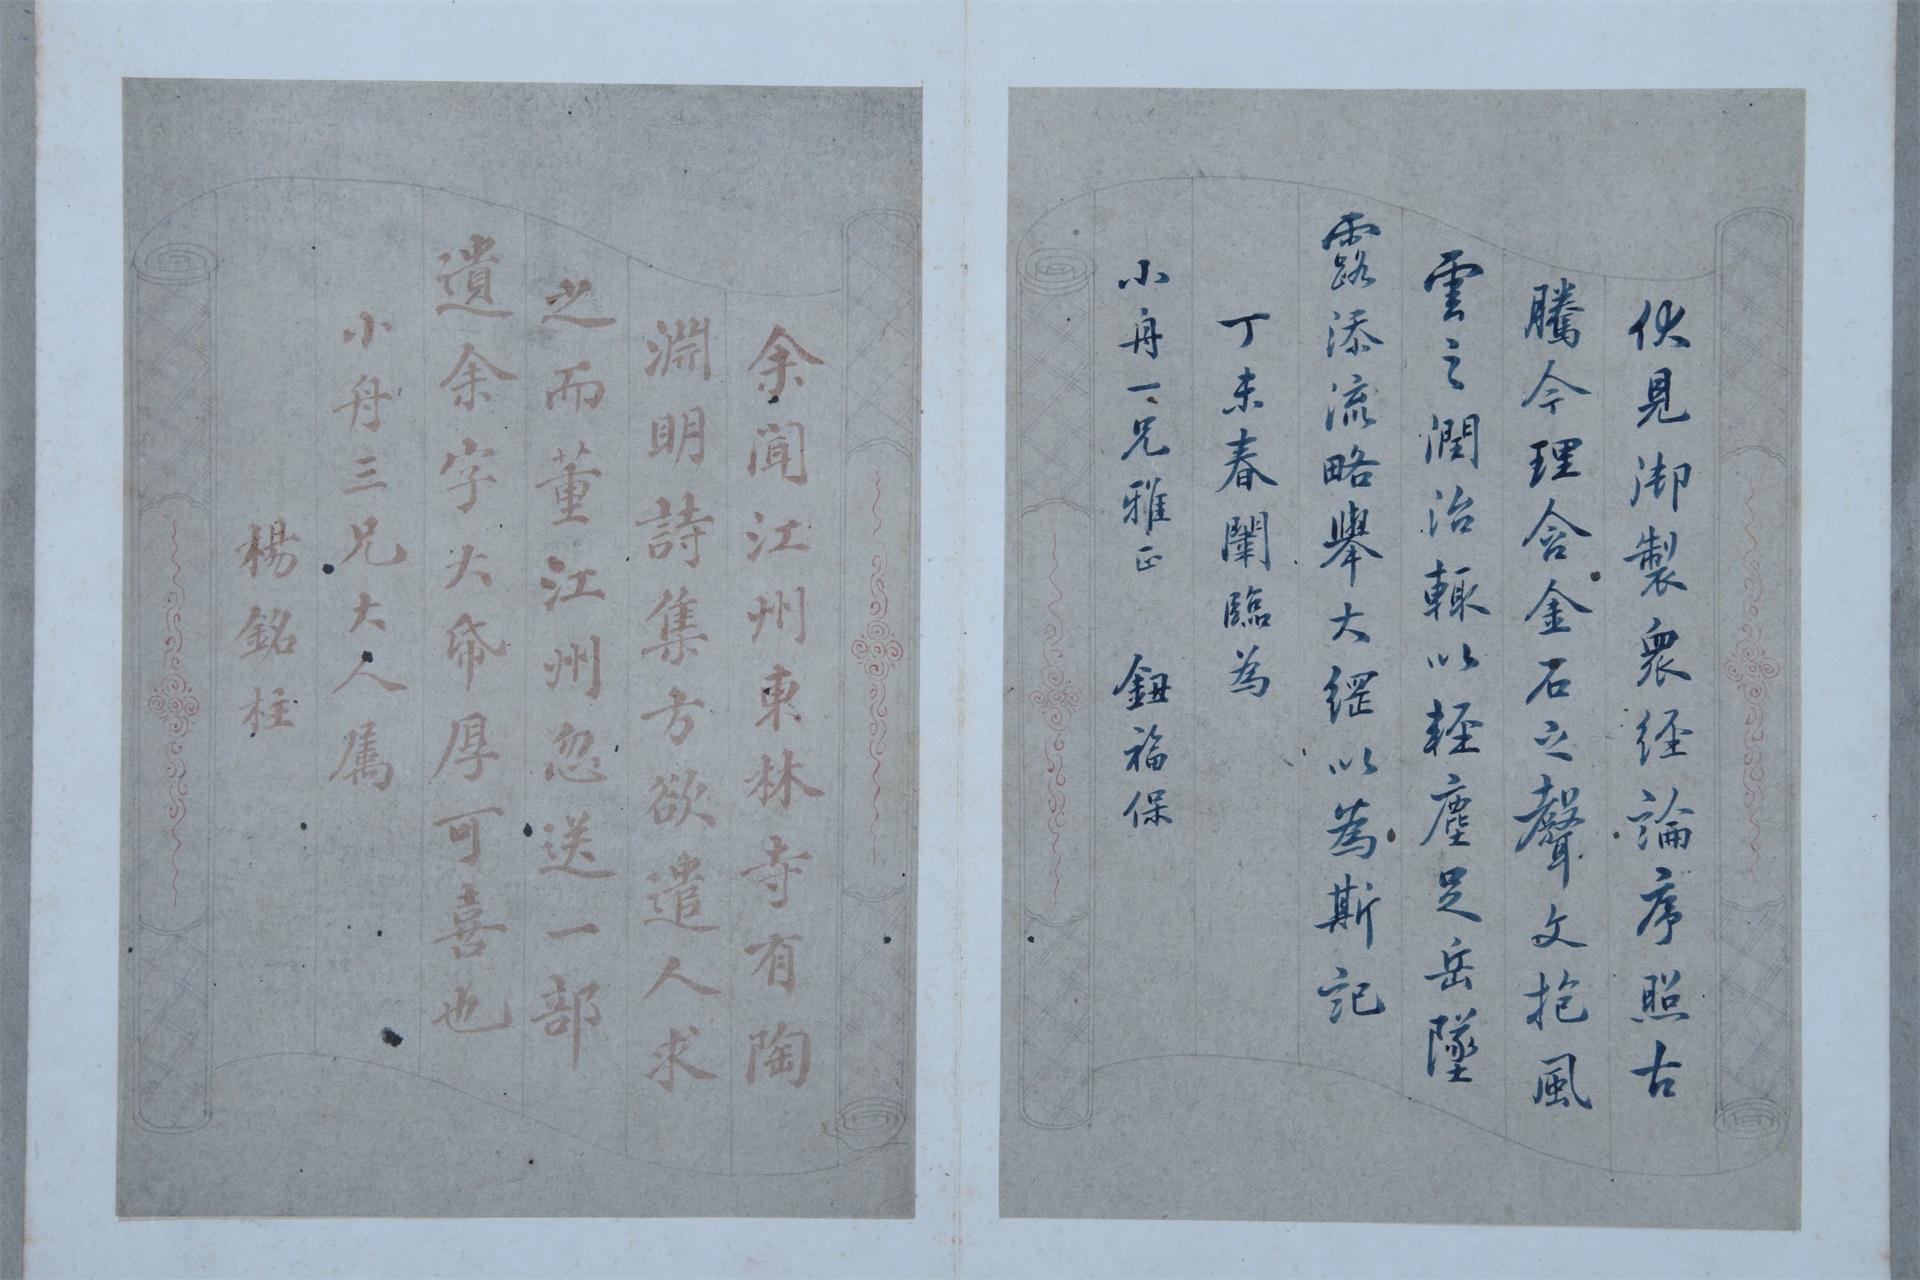 伏見御製衆經論序照古
騰今理含金石之聲文抱風
雲之潤治輒以輕塵足岳墜
露添流略舉大綱以為斯記
丁未春闈臨為
小舟一兄雅正 鈕福保
余聞江州東林寺有陶
淵明詩集方欲遣人求
之而董江州忽送一部
遺余字大帋厚可喜也
小舟三兄大人屬
楊銘柱